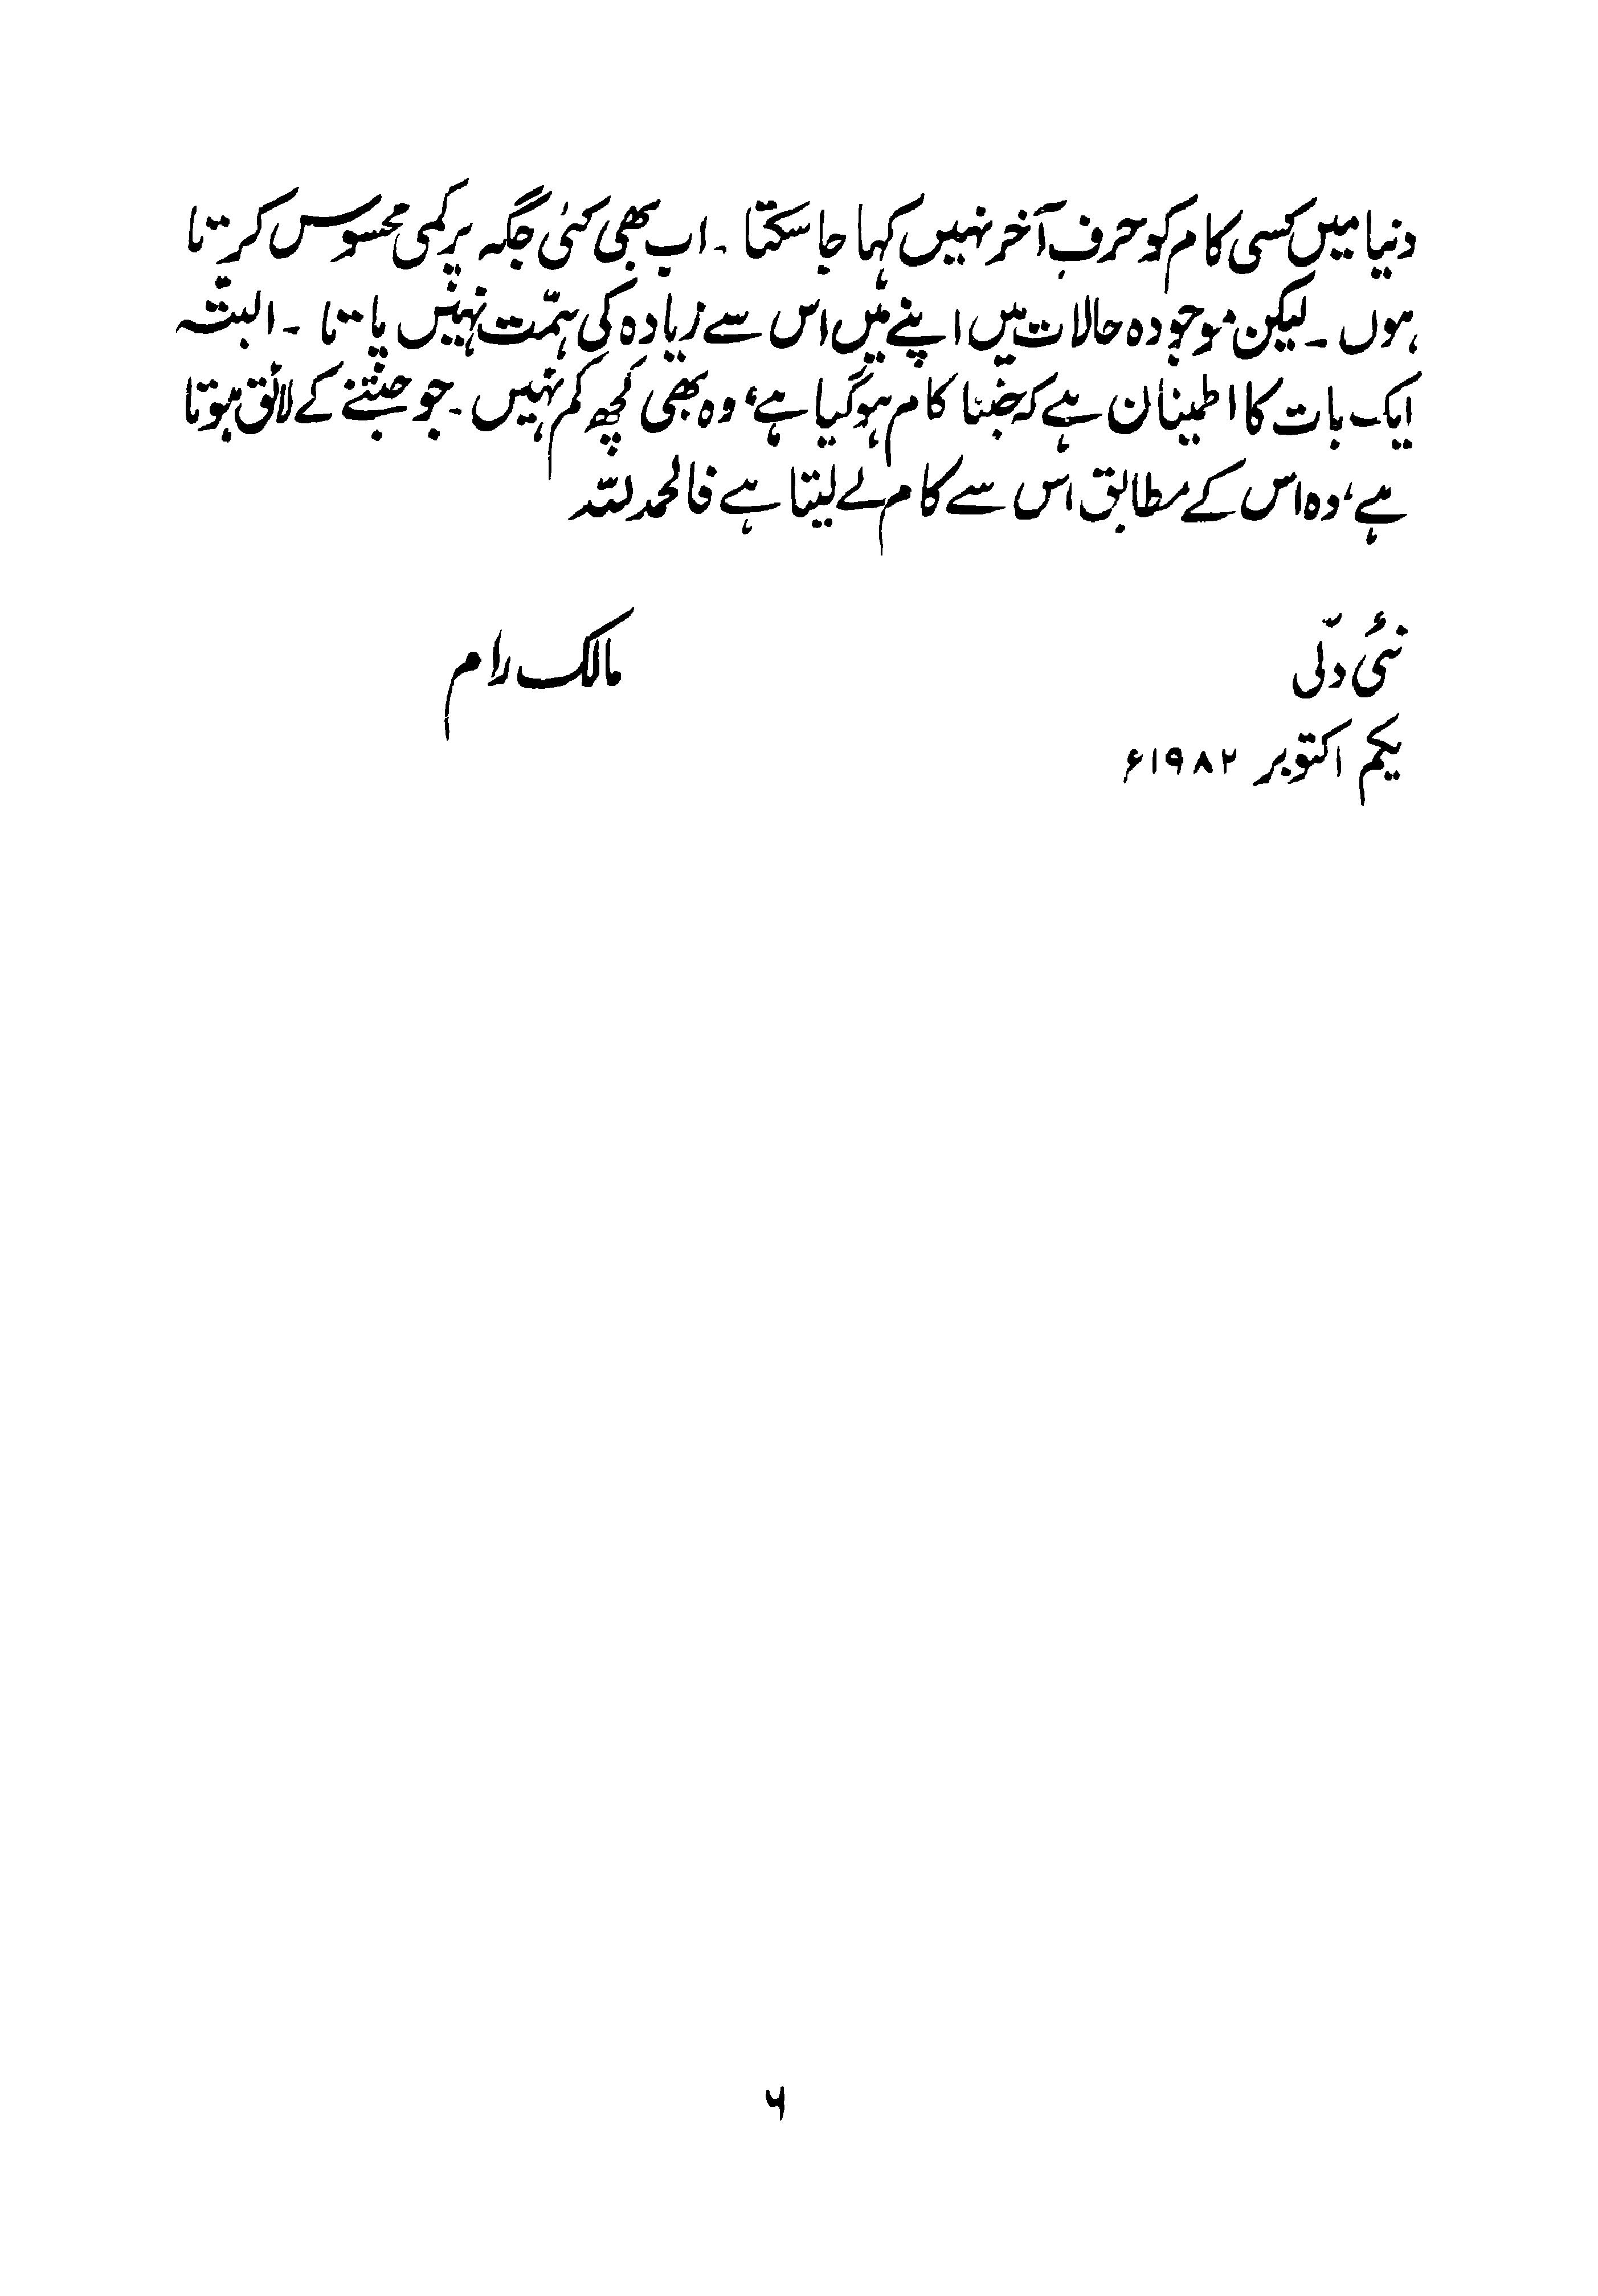 دنیا میں کسی کام کو حرفِ آخر نہیں کہا جا سکتا ۔ اب بھی کئی جگہ پر کمی محسوس کرتا
ہوں ۔ لیکن موجودہ حالات میں اپنے میں اس سے زیادہ کی ہمّت نہیں پاتا ۔ البتّہ
ایک بات کا اطمینان ہے کہ جتنا کام ہو گیا ہے، وہ بھی کچھ کم نہیں ۔ جو جتنے کے لائق ہوتا
ہے، وہ اس کے مطابق اس سے کام لے لیتا ہے فالحمدللہ
نئی دلّی
مالک رام
یکم اکتوبر ۱۹۸۲ء
۶